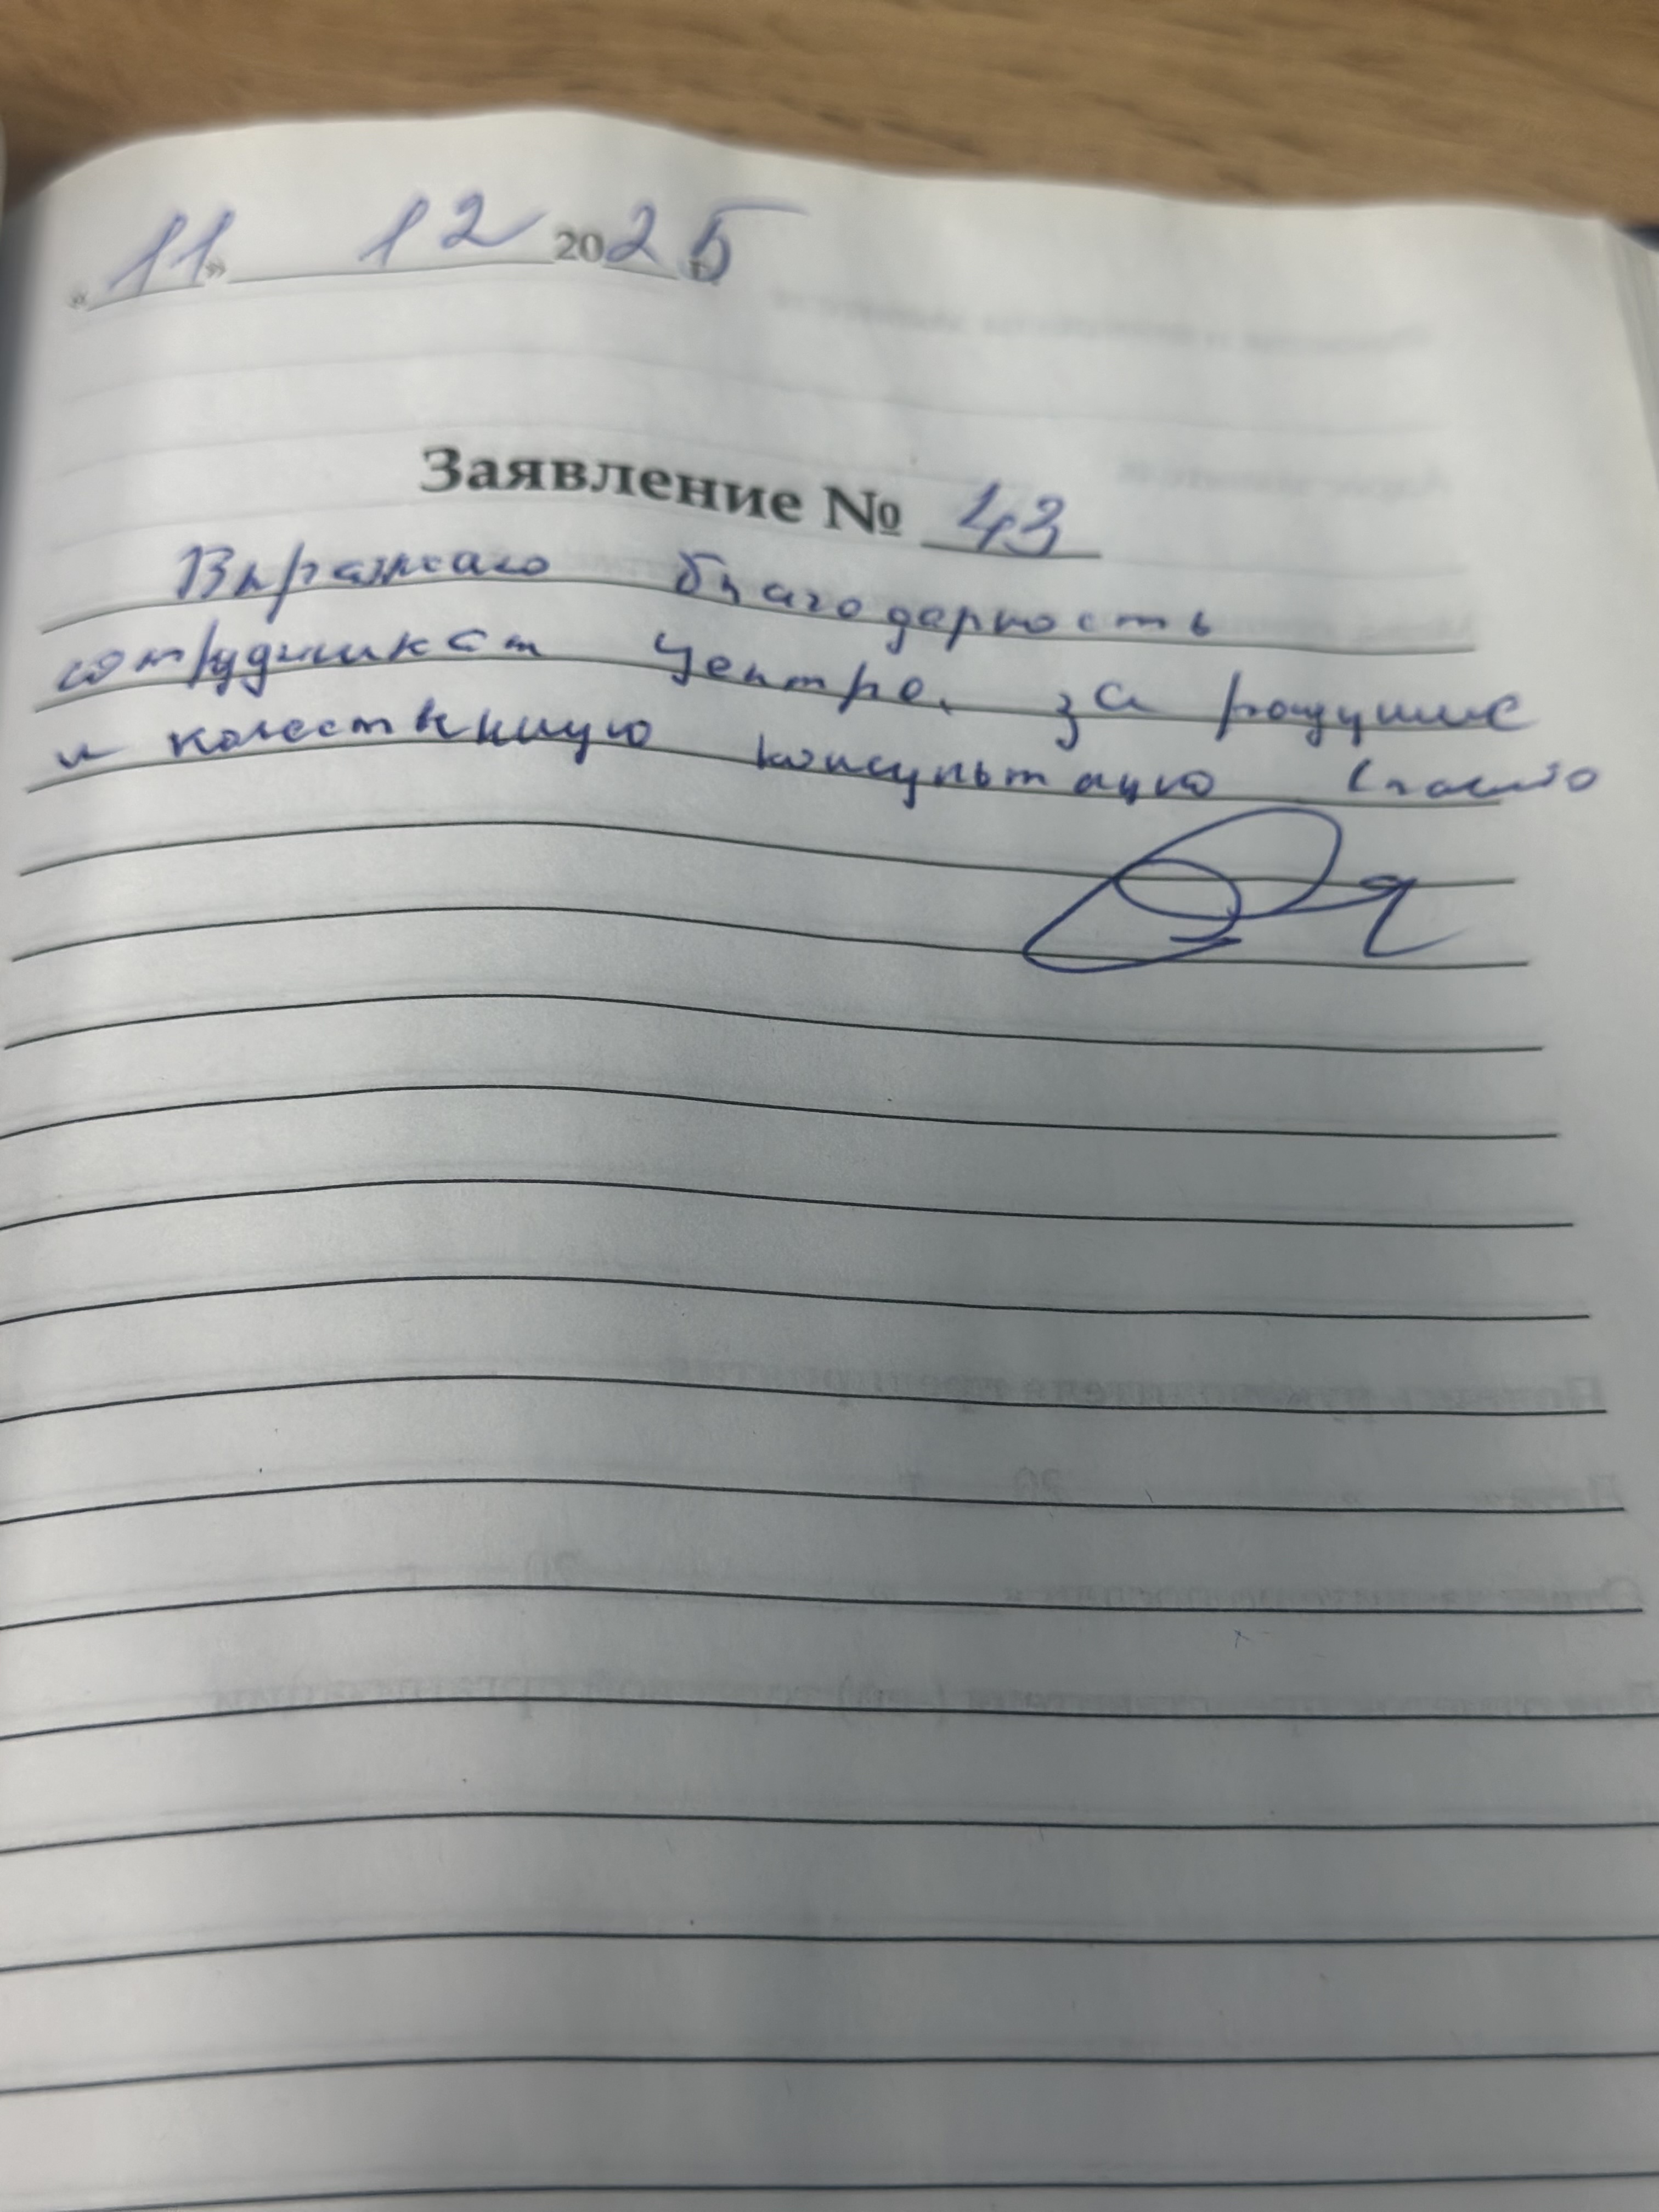 «11» 12 2025
Заявление № 43
Выражаю благодарность
сотрудникам центра, за радушие
и качественную консультацию Спасибо